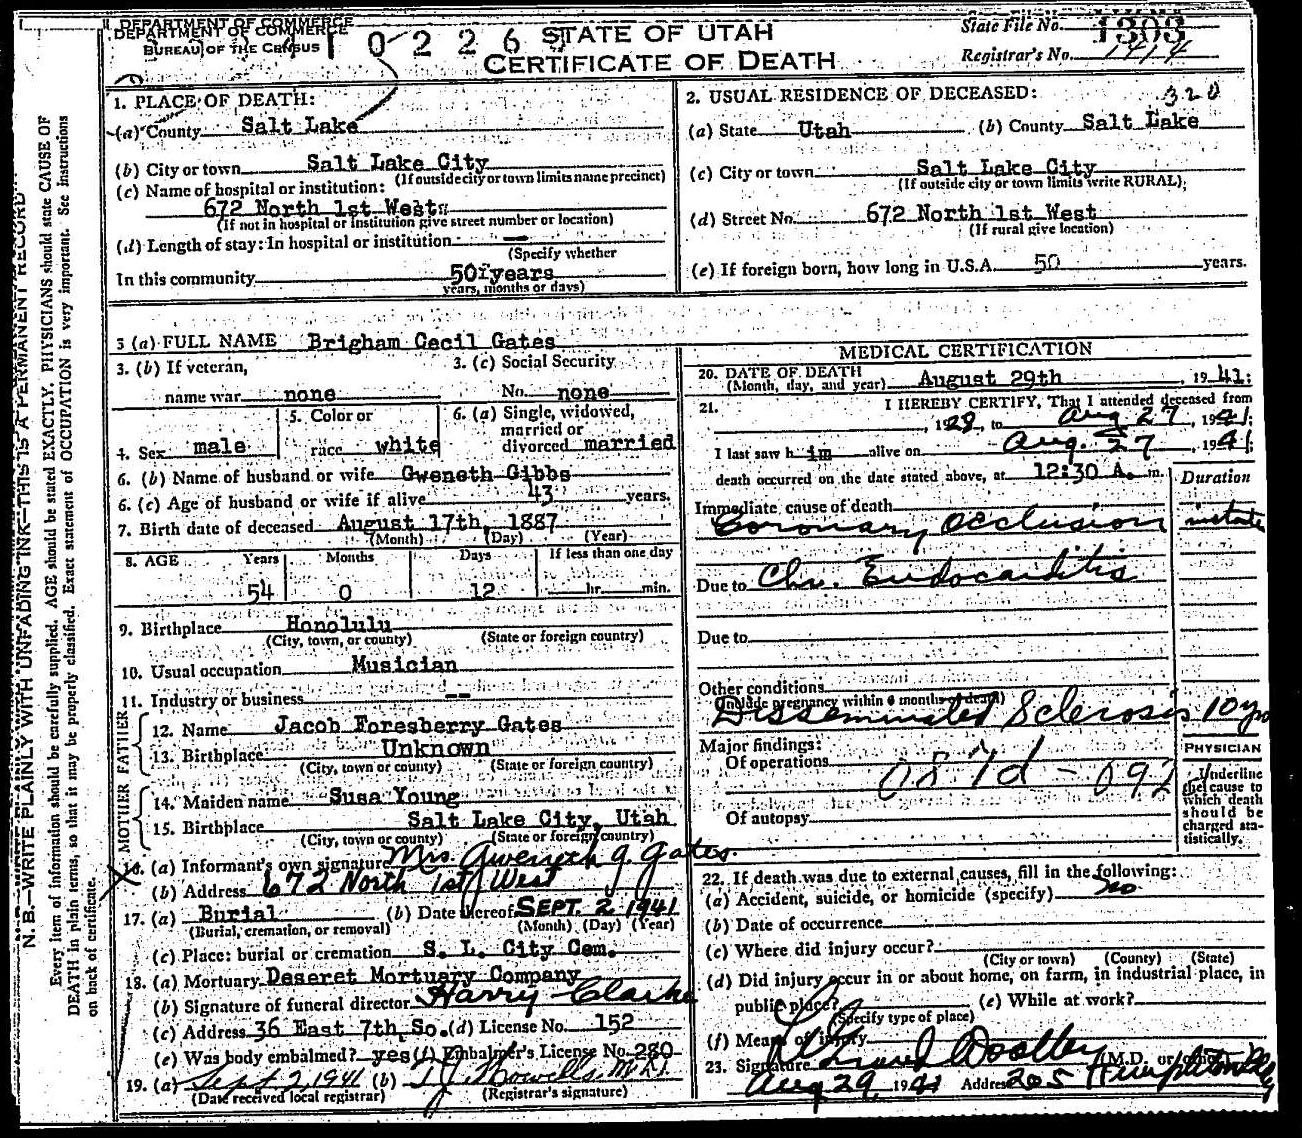 DEPARTMENT OF COMMERCE
DEPARTMENT OF COMMERCE
BUREAU OF THE CENSUS
STATE OF UTAH
CERTIFICATE OF DEATH
State File No. 1303
Registrar's No. 1414
N. B.—WRITE PLAINLY WITH UNFADING INK—THIS IS A PERMANENT RECORD
Every item of information should be carefully supplied. AGE should be stated EXACTLY. PHYSICIANS should state CAUSE OF
DEATH in plain terms, so that it may be properly classified. Exact statement of OCCUPATION is very important. See instructions
on back of certificate.
1. PLACE OF DEATH:
(a) County Salt Lake
(b) City or town Salt Lake City
(If outside city or town limits name precinct)
(c) Name of hospital or institution:
672 North 1st West
(If not in hospital or institution give street number or location)
(d) Length of stay: In hospital or institution —
(Specify whether
In this community 50 years
years, months or days)
2. USUAL RESIDENCE OF DECEASED: 320
(a) State Utah (b) County Salt Lake
(c) City or town Salt Lake City
(If outside city or town limits write RURAL)
(d) Street No. 672 North 1st West
(If rural give location)
(e) If foreign born, how long in U.S.A. 50 years.
3 (a) FULL NAME Brigham Cecil Gates
3. (b) If veteran, 3. (c) Social Security
name war none No. none
4. Sex male 5. Color or race white 6. (a) Single, widowed, married or divorced married
6. (b) Name of husband or wife Gweneth Gibbs
6. (c) Age of husband or wife if alive 43 years.
7. Birth date of deceased August 17th, 1887
(Month) (Day) (Year)
8. AGE Years Months Days If less than one day
54 0 12 hr. min.
9. Birthplace Honolulu
(City, town, or county) (State or foreign country)
10. Usual occupation Musician
11. Industry or business --
FATHER
12. Name Jacob Foresberry Gates
13. Birthplace Unknown
(City, town or county) (State or foreign country)
MOTHER
14. Maiden name Susa Young
15. Birthplace Salt Lake City, Utah
(City, town or county) (State or foreign country)
16. (a) Informant's own signature Mrs. Gwenyth G. Gates.
(b) Address 672 North 1st West
17. (a) Burial (b) Date thereof SEPT. 2 1941
(Burial, cremation, or removal) (Month) (Day) (Year)
(c) Place: burial or cremation S. L. City Cem.
18. (a) Mortuary Deseret Mortuary Company
(b) Signature of funeral director Harry Clarke
(c) Address 36 East 7th So. (d) License No. 152
(e) Was body embalmed? yes (f) Embalmer's License No. 280
19. (a) Sept 2, 1941 (b)
(Date received local registrar) (Registrar's signature)
MEDICAL CERTIFICATION
20. DATE OF DEATH
(Month, day, and year) August 29th, 1941:
21. I HEREBY CERTIFY, That I attended deceased from
, 1928, to Aug 27, 1941.
I last saw h im alive on Aug. 27, 1941.
death occurred on the date stated above, at 12:30 A. m.
Duration
Immediate cause of death
Coronary Occlusion
Due to Chr. Endocarditis
Due to
Other conditions
(Include pregnancy within 6 months of death)
Disseminated Sclerosis 10 yrs
Major findings:
Of operations
087d - 092
Of autopsy
PHYSICIAN
Underline the cause to which death should be charged statistically.
22. If death was due to external causes, fill in the following:
(a) Accident, suicide, or homicide (specify) No
(b) Date of occurrence
(c) Where did injury occur?
(City or town) (County) (State)
(d) Did injury occur in or about home, on farm, in industrial place, in
public place? (e) While at work?
(Specify type of place)
(f) Means of injury
23. Signature (M.D. or other)
Aug 29, 1941 Address 205